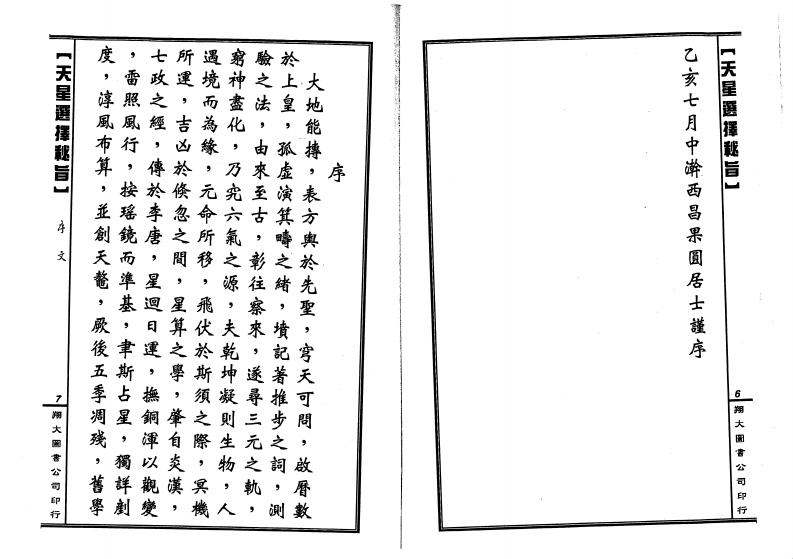 【天星選擇秘旨】
6
翔大圖書公司印行
乙亥七月中澣西昌果圓居士謹序
序
大地能摶，表方輿於先聖，穹天可問，啟曆數
於上皇，孤虛演箕疇之緒，墳記著推步之詞，測
驗之法，由來至古，彰往察來，遂尋三元之軌，
窮神盡化，乃究六氣之源，夫乾坤凝則生物，人
遇境而為緣，元命所移，飛伏於斯須之際，冥機
所運，吉凶於倏忽之間，星算之學，肇自炎漢，
七政之經，傳於李唐，星迴日運，撫銅渾以觀變
，雷照風行，按瑶鏡而準基，聿斯占星，獨詳剷
度，淳風布算，並創天鼇，厥後五季凋殘，舊學
【天星選擇秘旨】
序文
7
翔大圖書公司印行